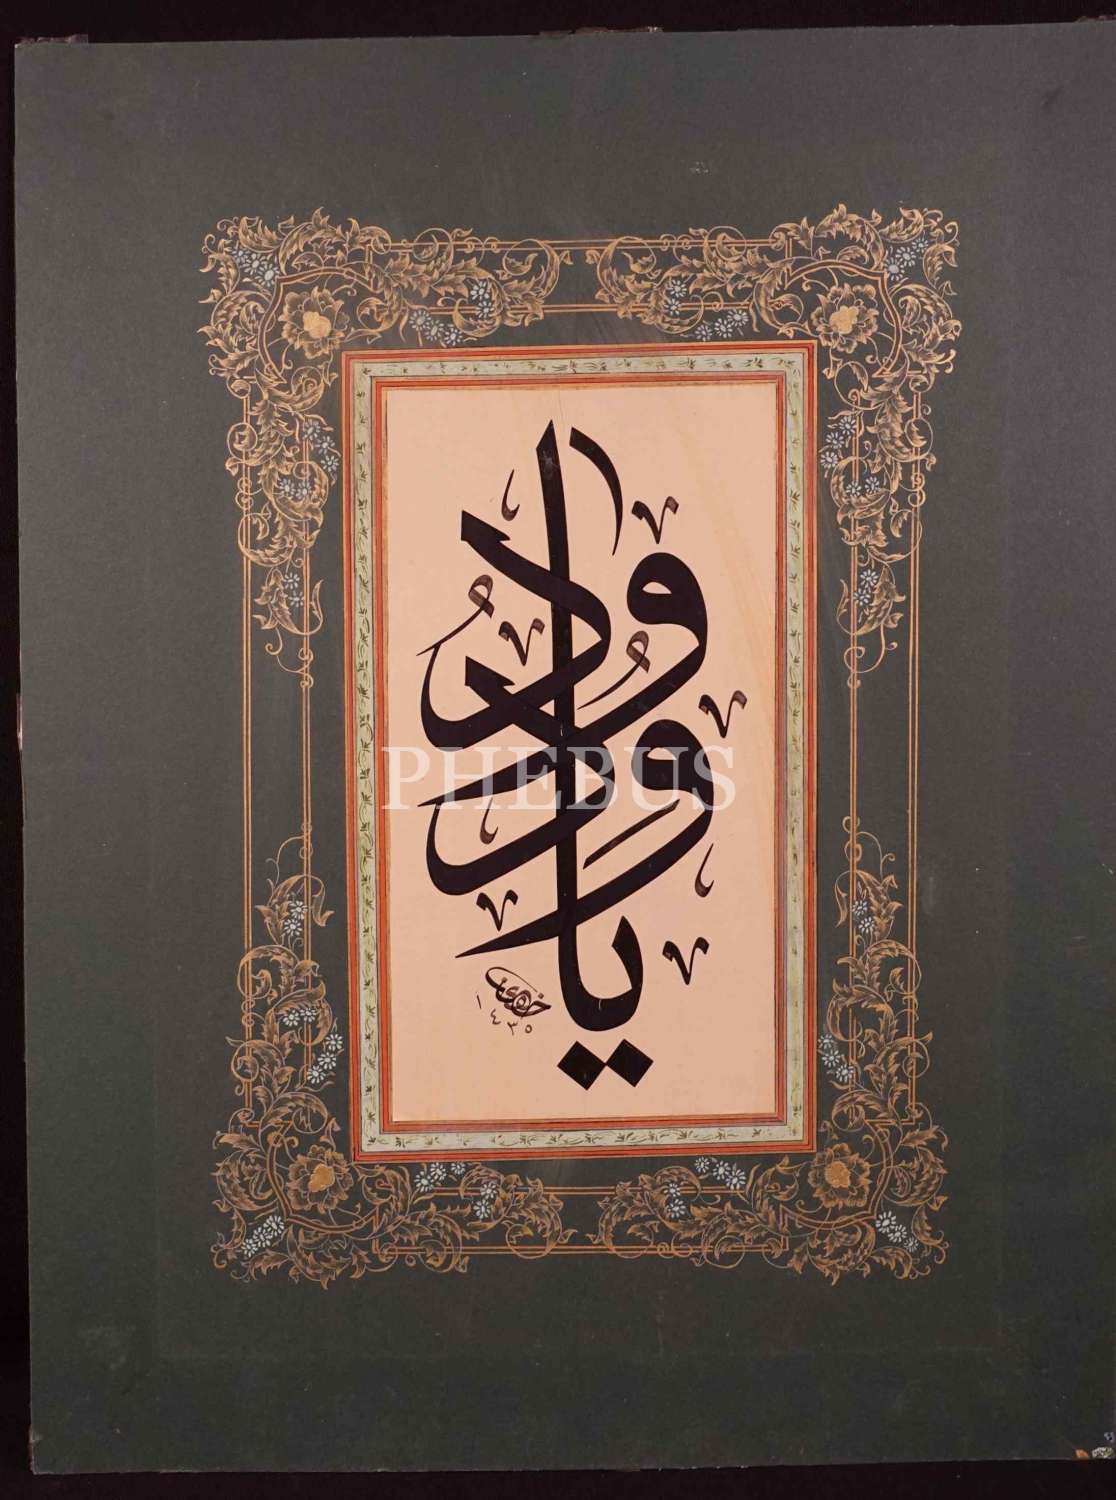 يا ودود
PHEBUS
١٤٣٥